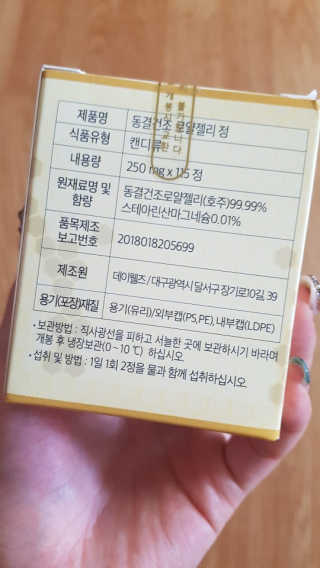 제품명 동결건조 로얄젤리 정
식품유형 캔디류
내용량 250 mg x 115 정
원재료명 및 함량 동결건조로얄젤리(호주)99.99%
스테아린산마그네슘0.01%
품목제조 보고번호 2018018205699
제조원 데이웰즈 / 대구광역시 달서구 장기로10길, 39
용기(포장)재질 용기(유리)/외부캡(PS,PE), 내부캡(LDPE)
• 보관방법 : 직사광선을 피하고 서늘한 곳에 보관하시기 바라며
개봉 후 냉장보관(0~10 ℃) 하십시오.
• 섭취 및 방법 : 1일 1회 2정을 물과 함께 섭취하십시오.